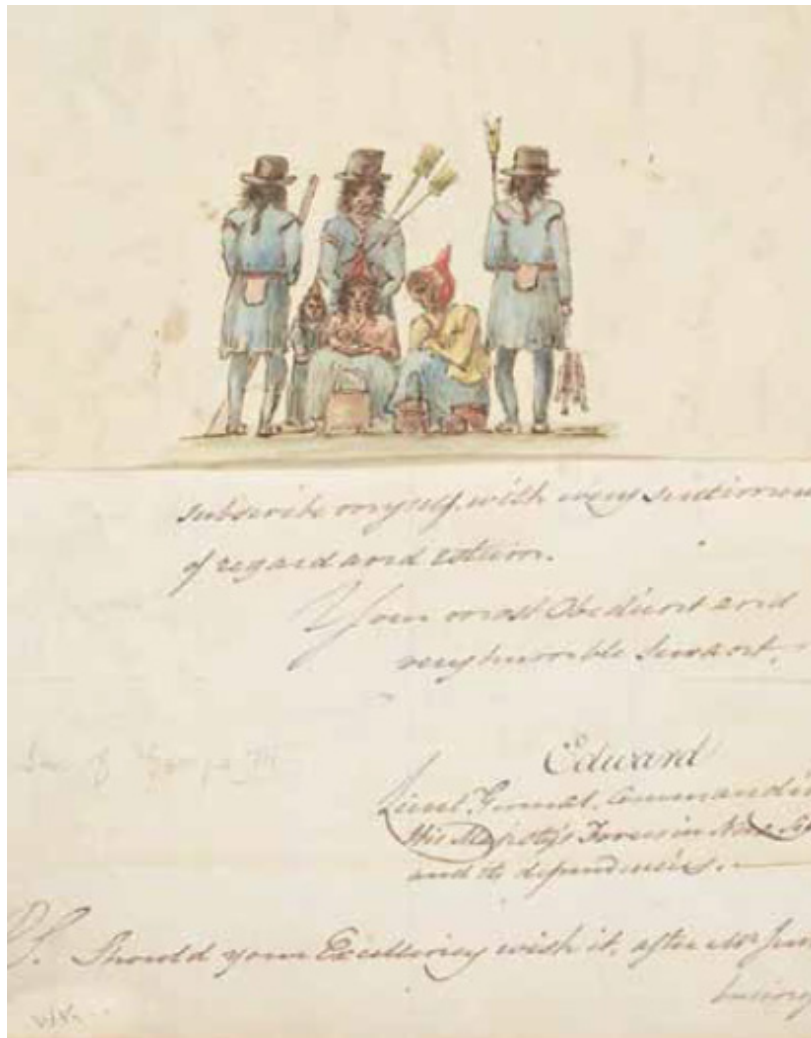 subscribe myself, with every sentimen
of regard and esteem.
Your most Obedient and
very humble Servant,
Edward
Lieut. General, Commandin
His Majesty's Forces in Nova
and its dependencies.
Son of George III
P.S. Should your Excellency wish it, after Mr
having